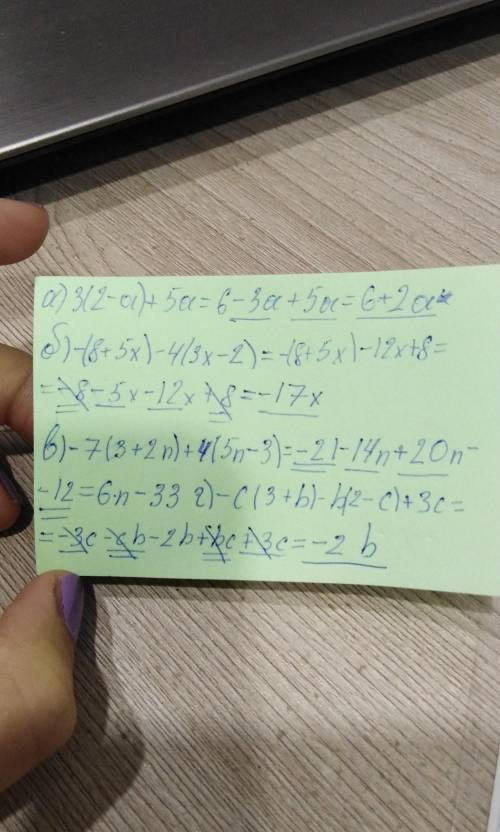 а) 3(2-a)+5a=6-3a+5a=6+2a
б) -(8+5x)-4(3x-2)=-(8+5x)-12x+8=
=-8-5x-12x+8=-17x
в) -7(3+2n)+4(5n-3)=-21-14n+20n-
-12=6n-33 г) -c(3+b)-b(2-c)+3c=
=-3c-cb-2b+bc+3c=-2b